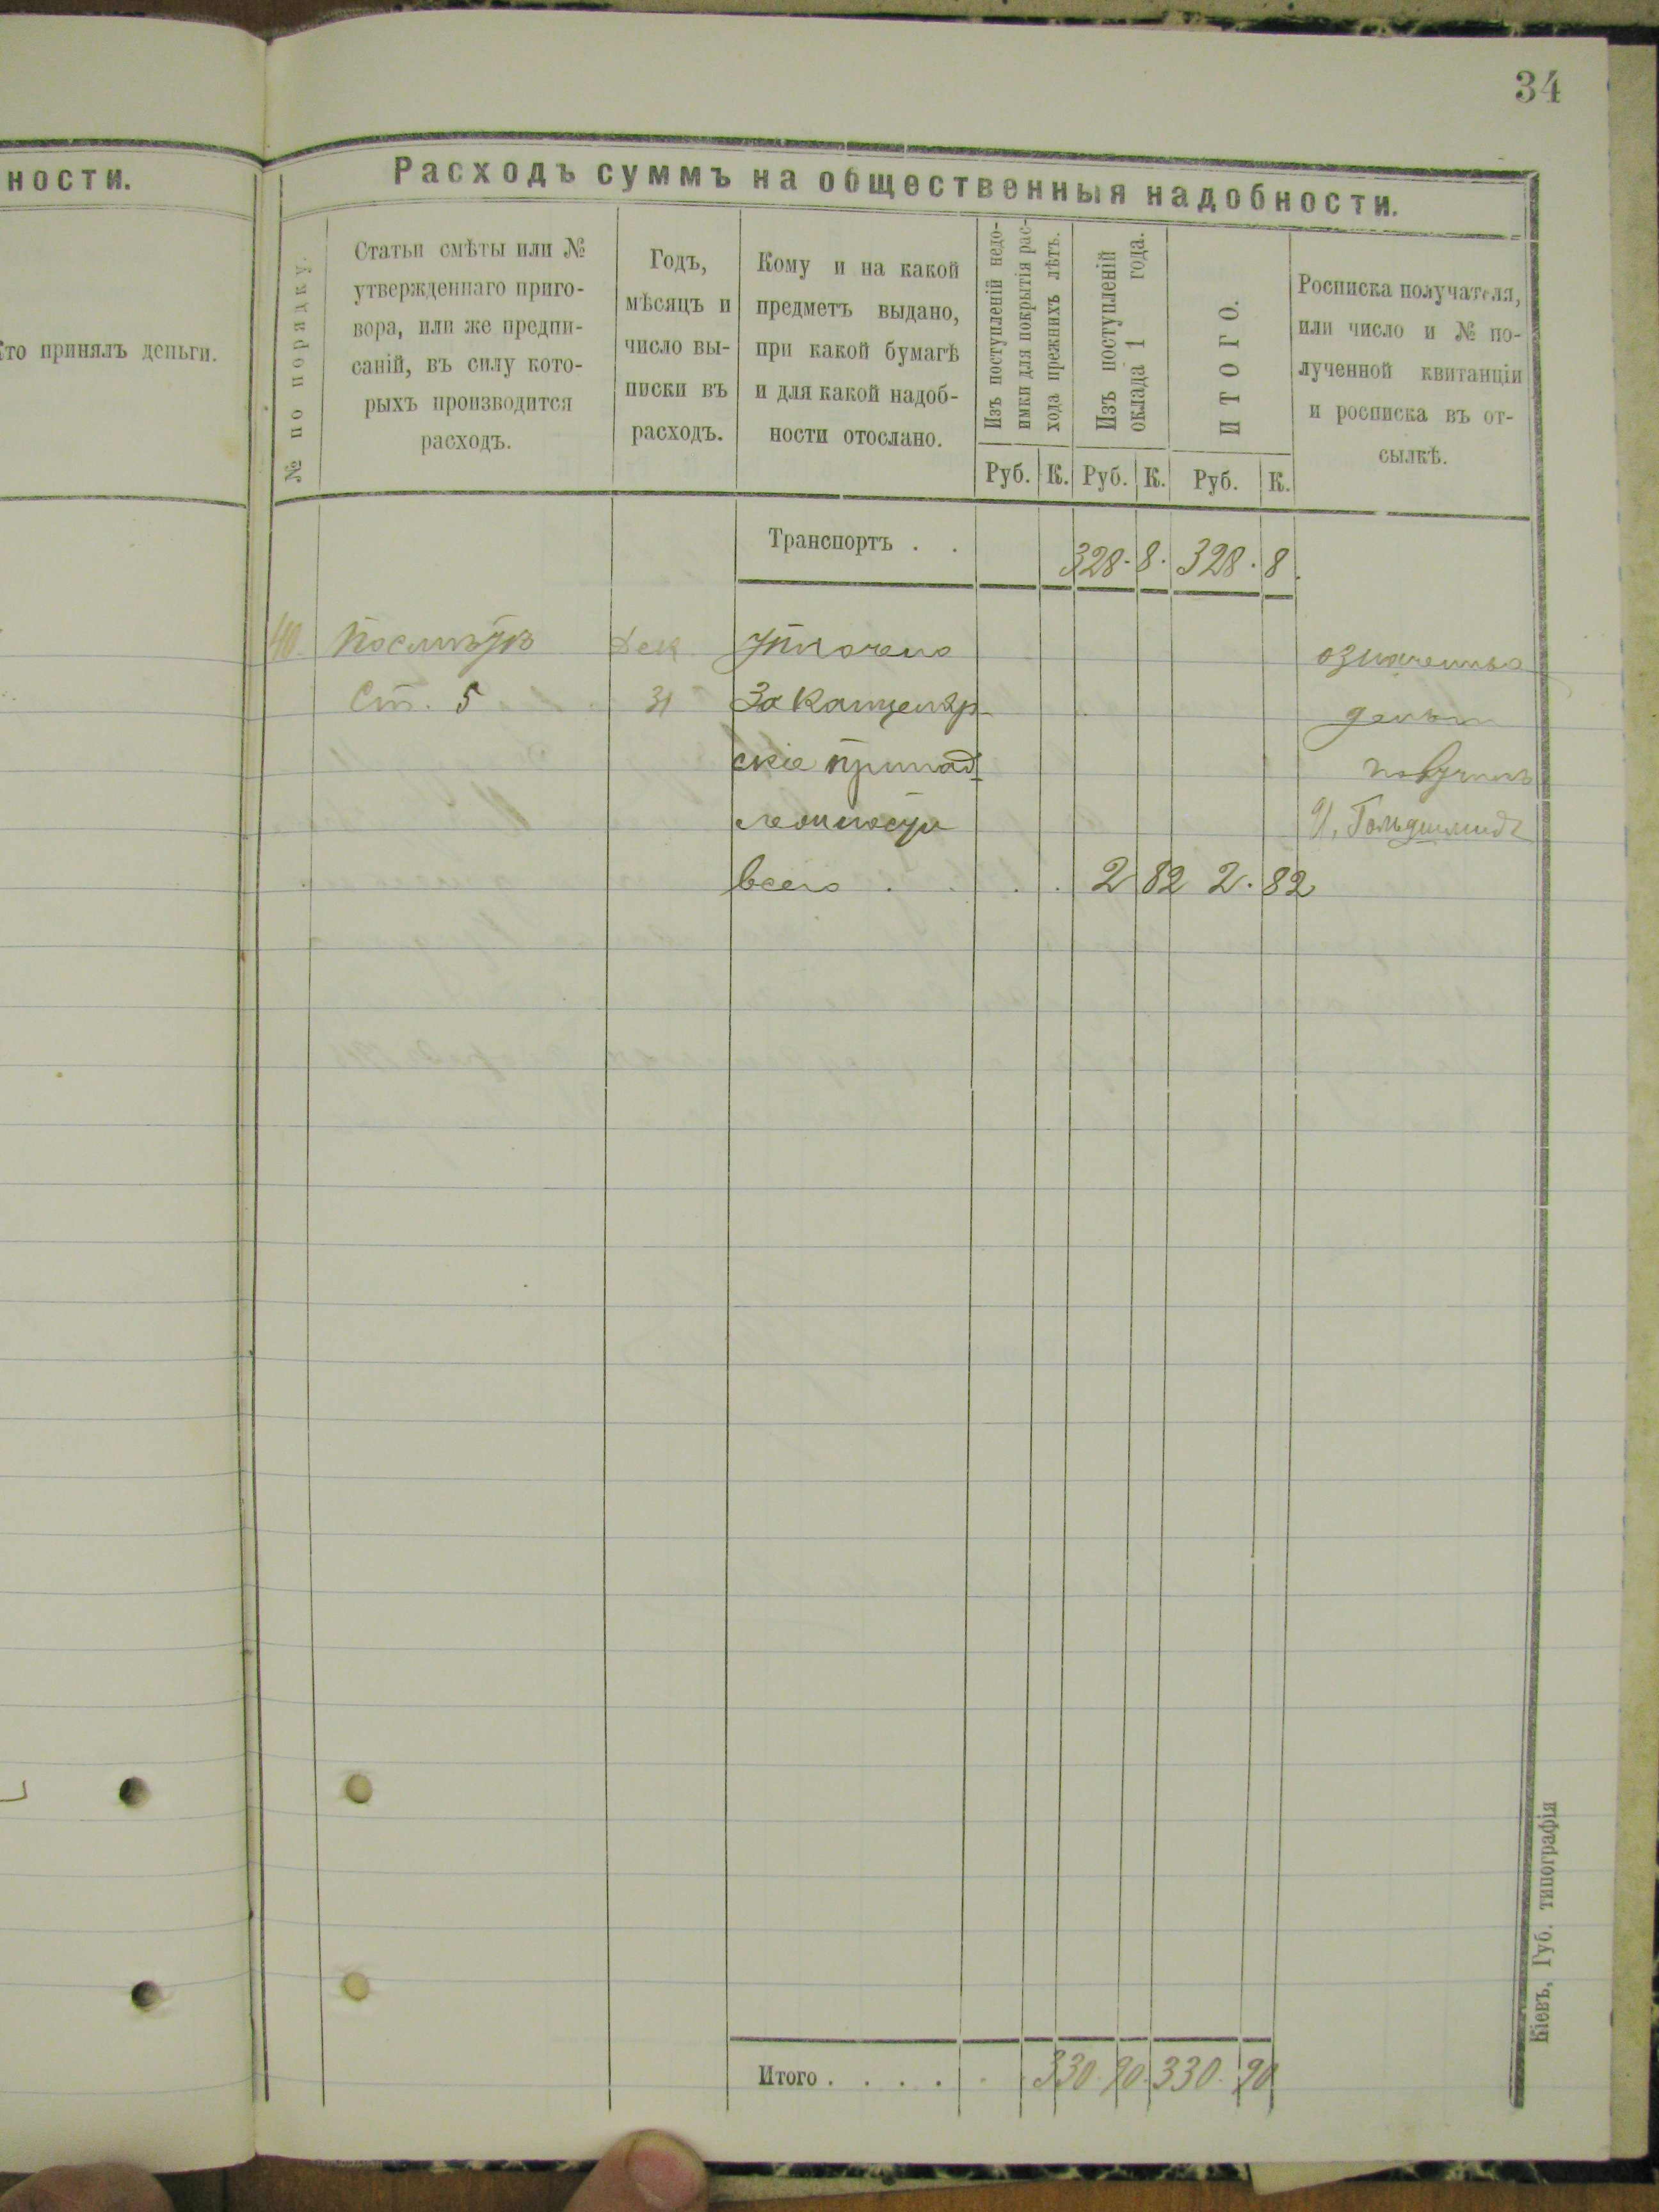 34
ности.
Кто принялъ деньги.
Расходъ суммъ на общественныя надобности.
№ по порядку.
Статьи смѣты или №
утвержденнаго приго-
вора, или же предпи-
саній, въ силу кото-
рыхъ производится
расходъ.
Годъ,
мѣсяцъ и
число вы-
писки въ
расходъ.
Кому и на какой
предметъ выдано,
при какой бумагѣ
и для какой надоб-
ности отослано.
Изъ поступленій недо-
имки для покрытія рас-
хода прежнихъ лѣтъ.
Изъ поступленій
оклада 1 года.
ИТОГО.
Росписка получателя,
или число и № по-
лученной квитанціи
и росписка въ от-
сылкѣ.
Руб. К. Руб. К. Руб. К.
Транспортъ . . 328. 8. 328. 8.
40. Дек Уплочено означенные
Ст. 5 31 За канцеляр- деньги
скіе принад получилъ
лежности Гольдшмидъ
всего . . . . 2 82 2. 82
Итого . . . . 330. 90. 330. 90
Кіевъ, Губ. типографія